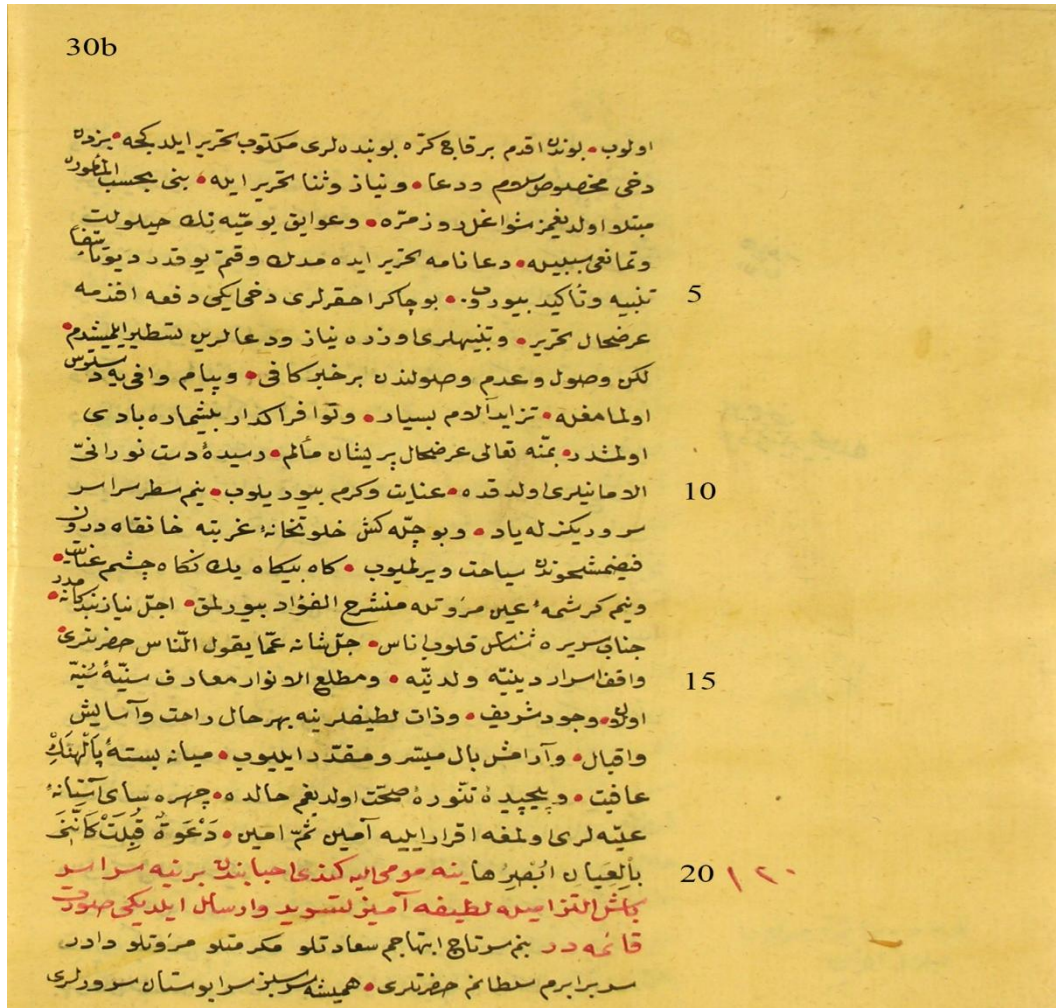 30b
اولوب • بوندن اقدم بر قاچ كره بو بنده لرى مكتوب تحرير ايلدكجه • بزدن
دخى مخصوص سلام ودعا • ونياز وثنا تحرير ايله • بنى بحسب المقدور
مبتلا اولديغمز شواغل روزمره • وعوايق يوميه نك حيلولت
وتمانعى سببيله • دعانامه تحرير ايده مدك وقتم يوقدر ديو
تنبيه وتأكيد بيوروب • بو چاكر احقرلرى دخى ايكى دفعه افندمه 5
عرضحال تحرير • وتنبيهلرى اوزره نياز ودعالرين تسطير ايلمشيدم •
لكن وصول وعدم وصولندن بر خبر كافى • وپيام وافى يه دسترس
اولمامغله • تزايد آلام بسيار • وتوافر اكدار بيشماره بادى
اولمشدر • بمنه تعالى عرضحال پريشان مألم • رسيدۀ دست نورانى
الامانيلرى اولدقده • عنايت وكرم بيوريلوب • نيم سطر سراسر 10
سروريكزله ياد • وبو چله كش خلوتخانۀ غربته خانقاه درون
سياحت ويرلميوب • كاه بيكاه يك نكاه چشم عنايت •
ونيم كرشمۀ عين مروتله منشرح الفؤاد بيورلمق • اجل نياز بندكانه مدر •
جناب سريره شناس قلوب ناس • جل شانه عما يقول الناس حضرتلرى
واقف اسرار دينيه ولدنيه • ومطلع الانوار معارف سنيۀ سنيه 15
اولان وجود شريف • وذات لطيفلرينه بهر حال راحت وآسايش
واقبال • وآرامش بال ميسر ومقدر ايليوب • ميانه بستۀ پالهنك
عافيت • وپيچيدۀ تنورۀ صحت اولديغم حالده • چهره ساى آستانۀ
عليه لرى اولمغه اقرار ايليه آمين ثم امين • دَعْوَةٌ قُبِلَتْ كَأَنّى
بِالعَيانِ اُبْصِرُها ينه مومى اليه كندى احبابندن برينه سراسر 20 ١٢٠
التزاميله لطيفه آميز تسويد وارسال ايلديكى صورت
قائمه در بنم سرتاج ابتهاجم سعادتلو مكرمتلو مروتلو دادر
سر برابرم سلطانم حضرتلرى • هميشه سرسبز سرابوستان سرورلرى